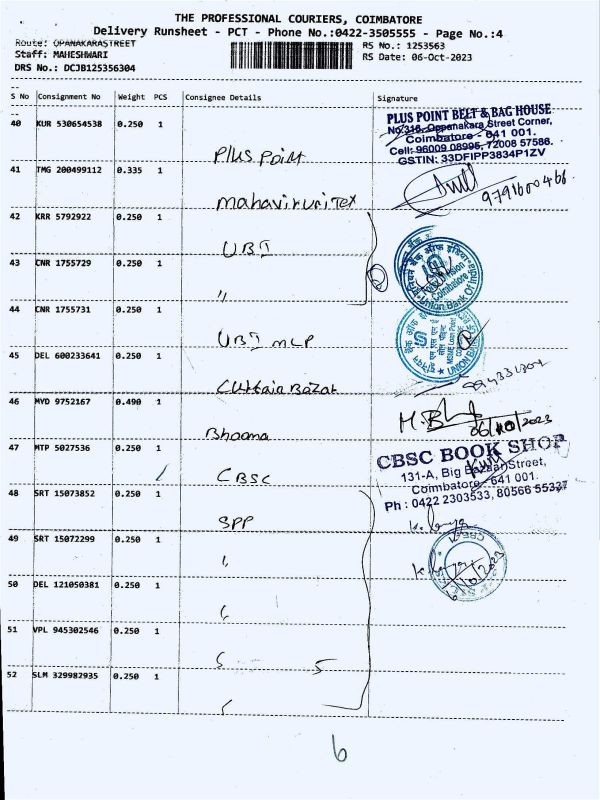 THE PROFESSIONAL COURIERS, COIMBATORE
Delivery Runsheet - PCT - Phone No.:0422-3505555 - Page No.:4
Route: OPANAKARASTREET
RS No.: 1253563
Staff: MAHESHWARI
RS Date: 06-Oct-2023
DRS No.: DCJB125356304
S No Consignment No Weight PCS Consignee Details Signature
40 KUR 530654538 0.250 1
Plus Point
PLUS POINT BELT & BAG HOUSE
No:316, Oppanakara Street Corner,
Coimbatore - 641 001.
Cell: 96009 08995, 72008 57586.
GSTIN: 33DFIPP3834P1ZV
41 TMG 200499112 0.335 1
9791600466
42 KRR 5792922 0.250 1
UBI
43 CNR 1755729 0.250 1
"
Union Bank Of India
Coimbatore
44 CNR 1755731 0.250 1
UBI MLP
45 DEL 600233641 0.250 1
46 MYD 9752167 0.490 1
Bhooma
06/10/2023
47 MTP 5027536 0.250 1
CBSC
CBSC BOOK SHOP
131-A, Big Bazaar Street,
Coimbatore - 641 001.
Ph : 0422 2303533, 80566 55327
48 SRT 15073852 0.250 1
SPP
49 SRT 15072299 0.250 1
50 DEL 121050381 0.250 1
51 VPL 945302546 0.250 1
5
52 SLM 329982935 0.250 1
6